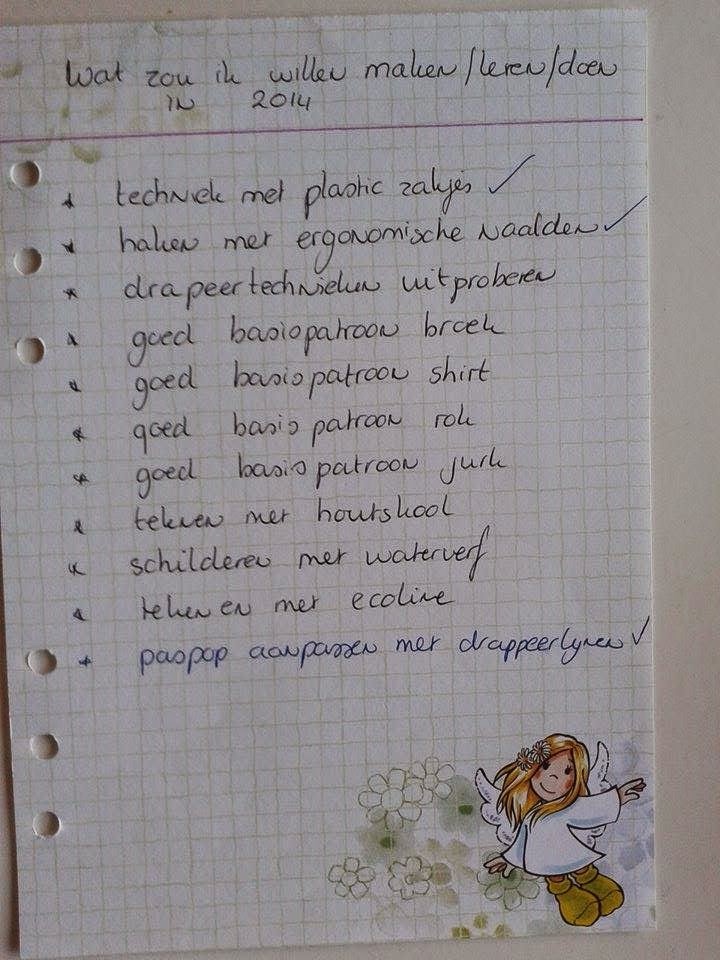 Wat zou ik willen maken/leren/doen
in 2014
* techniek met plastic zakjes ✓
* haken met ergonomische naalden ✓
* drapeertechnieken uitproberen
* goed basispatroon broek
* goed basispatroon shirt
* goed basispatroon rok
* goed basispatroon jurk
* tekenen met houtskool
* schilderen met waterverf
* tekenen met ecoline
* paspop aanpassen met drappeerlijnen ✓